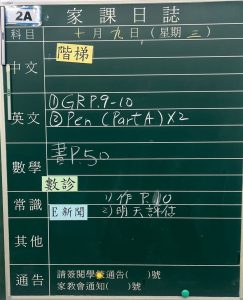 2A
家課日誌
科目 十月九日(星期三)
階梯
中文
英文 ①GRP.9-10
②Pen (Part A) X2
數學 書P.50
數診
常識 1)作P.10
E新聞 2)明天評估
其他
通告 請簽閱學校通告( )號
家教會通知( )號